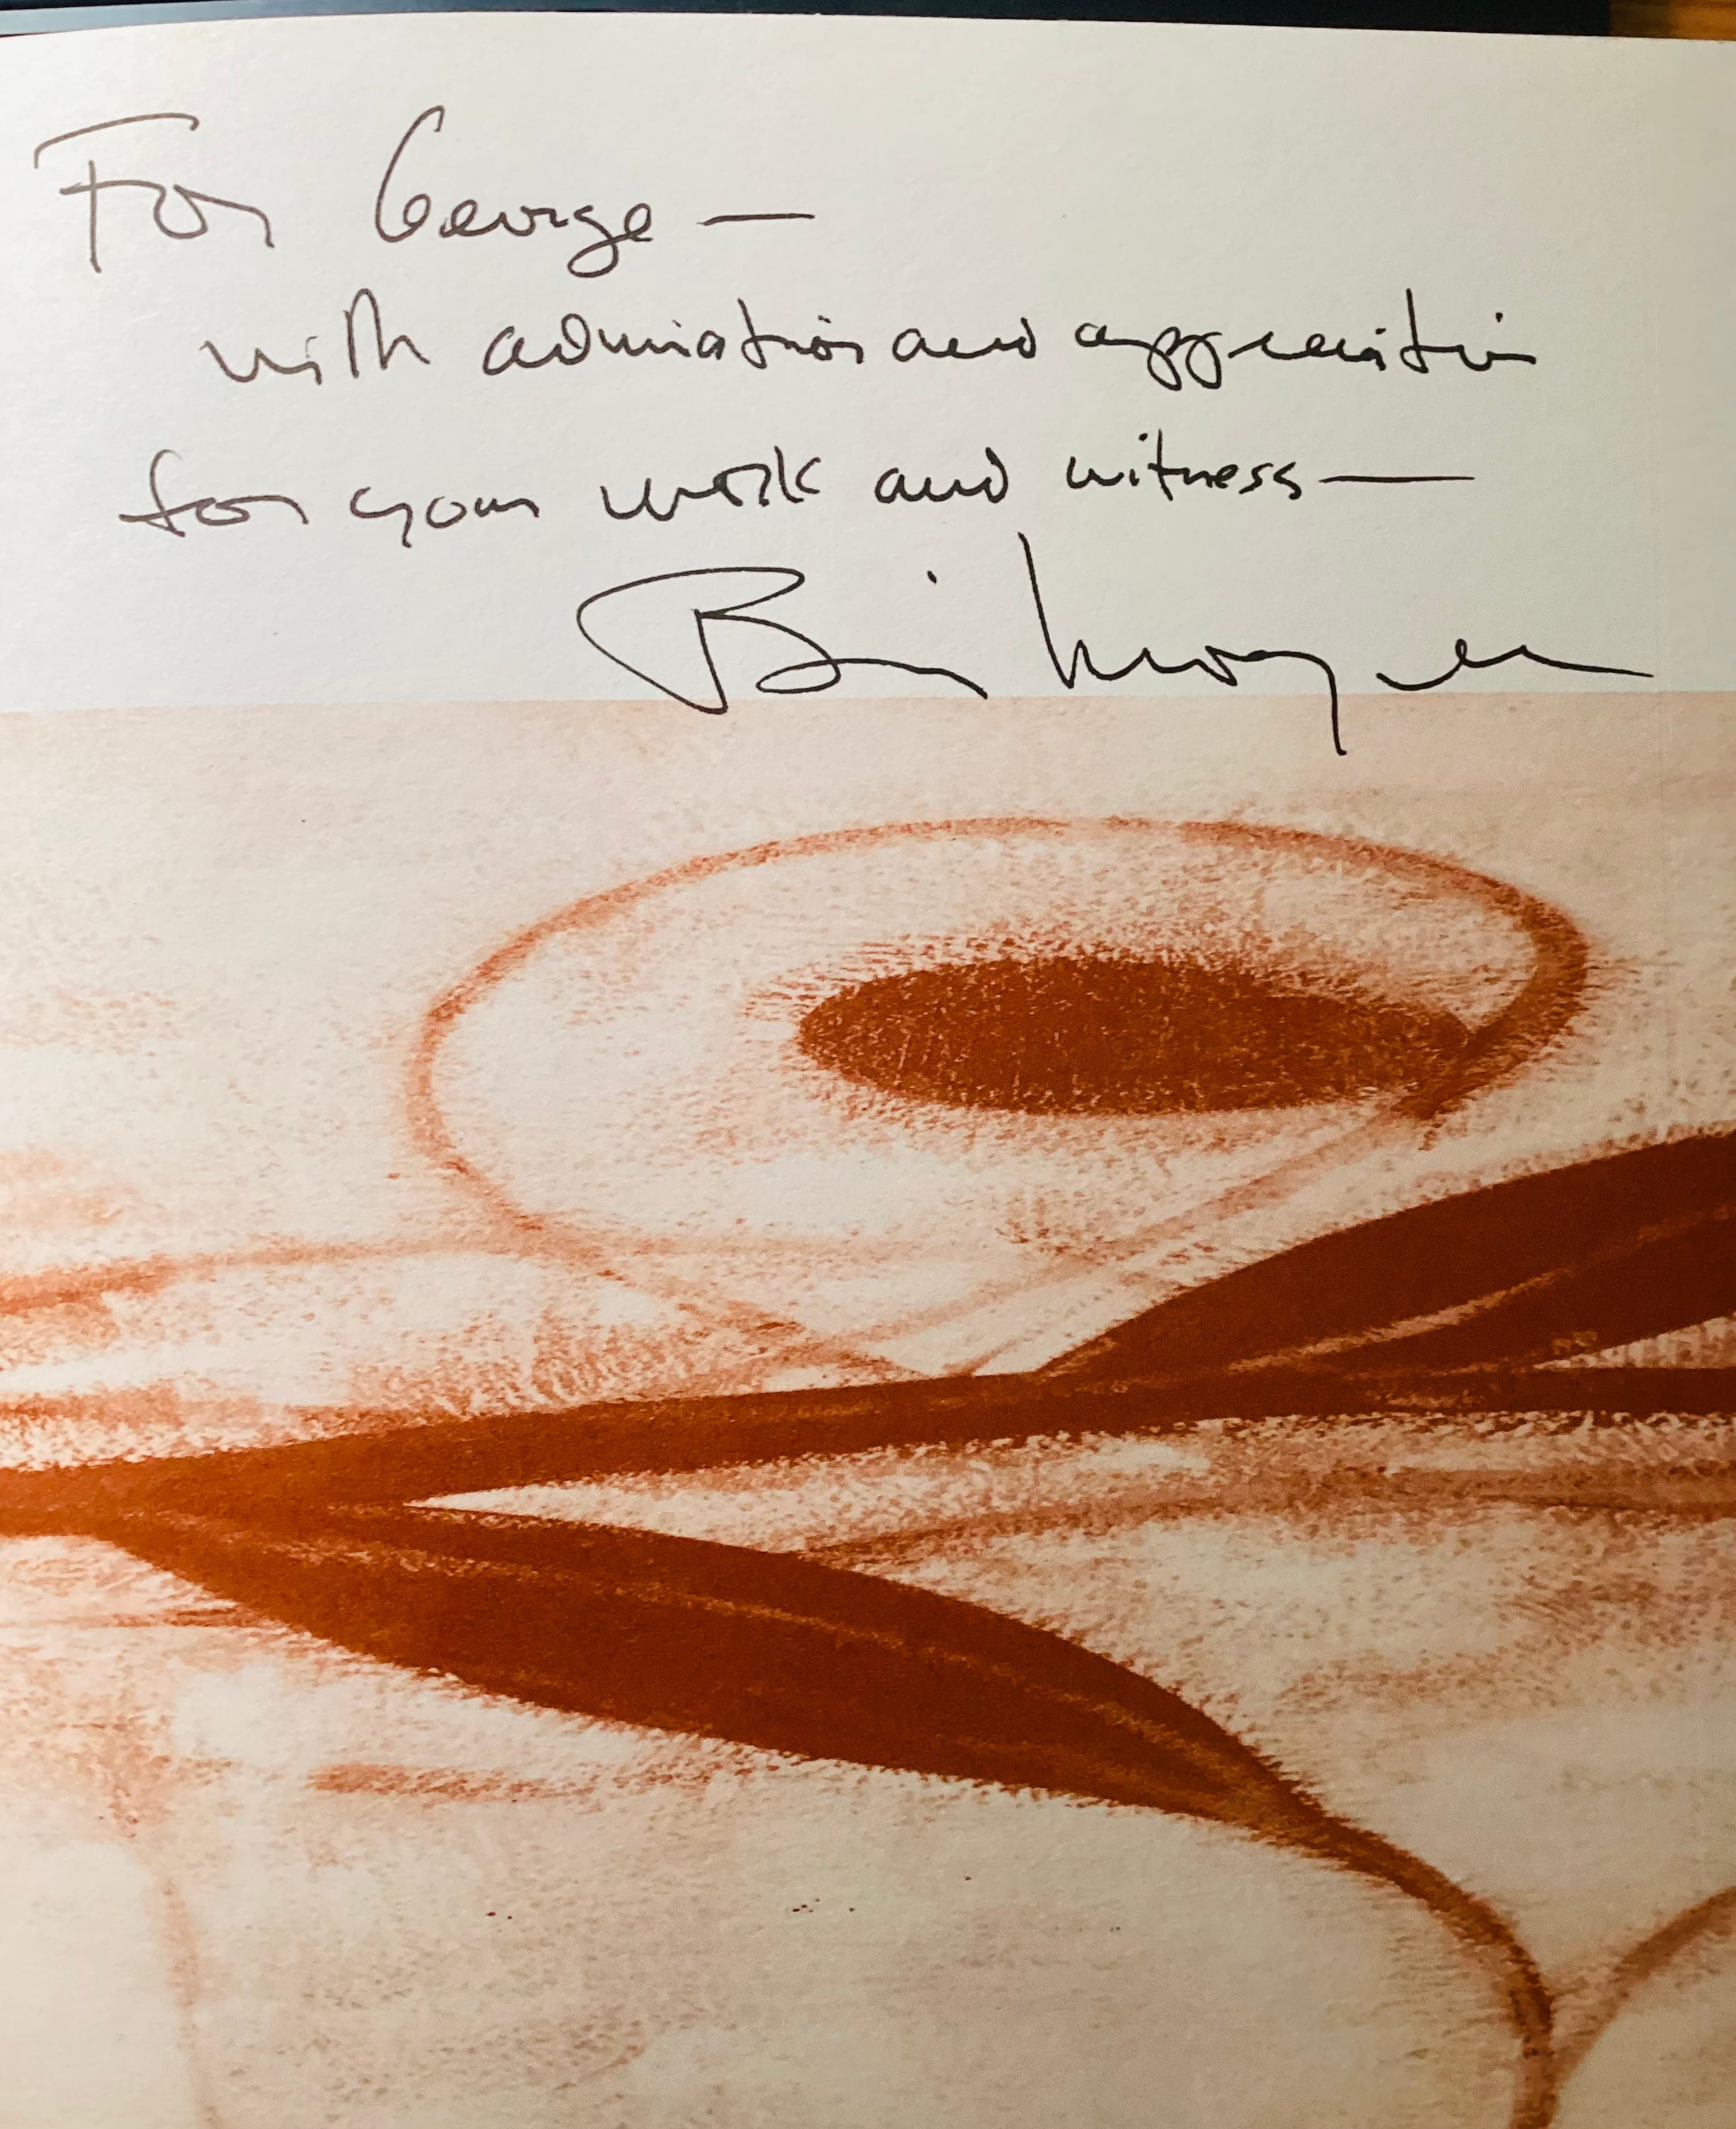 For George —
with admiration and appreciation
for your work and witness —
Bill Moyers